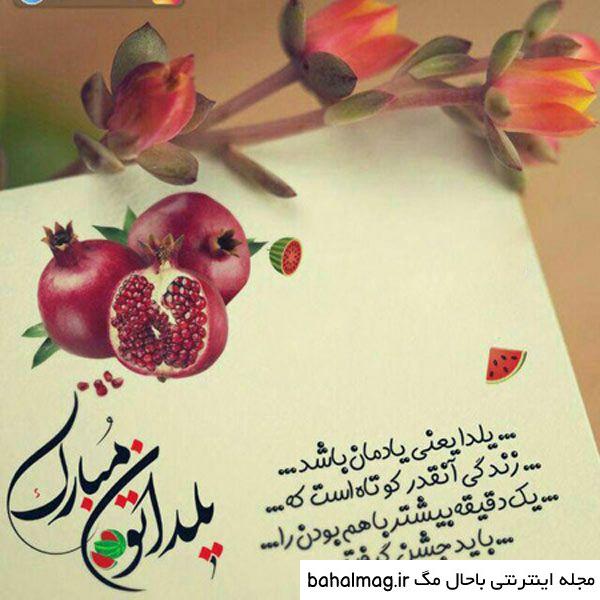 یلداتون مبارک
... یلدا یعنی یادمان باشد ...
... زندگی آنقدر کوتاه است که ...
... یک دقیقه بیشتر با هم بودن را ...
... باید جشن گرفت
مجله اینترنتی باحال مگ bahalmag.ir